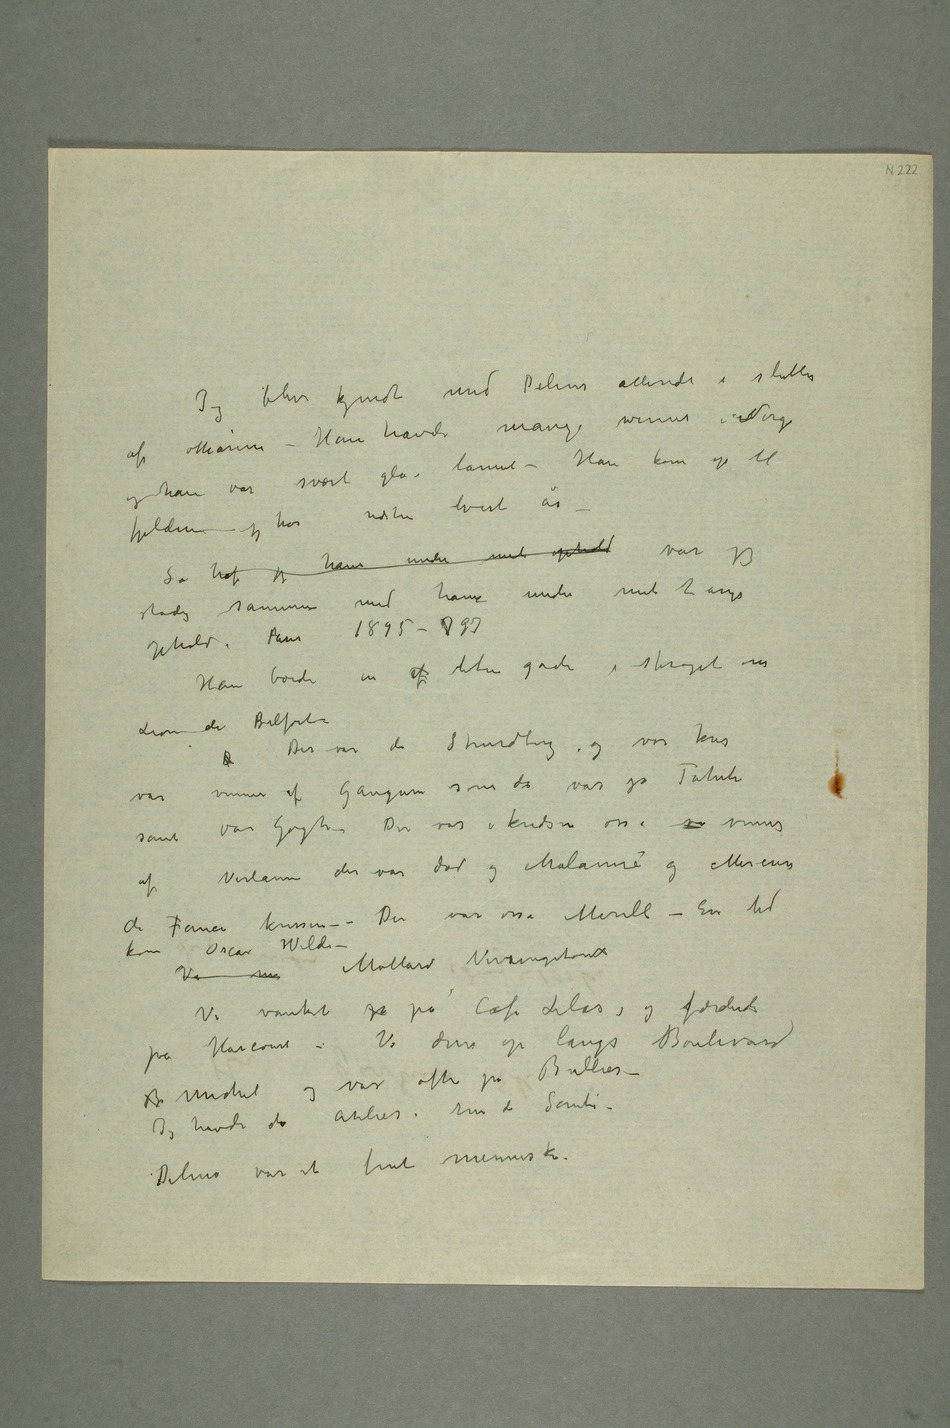 N 222
Jeg blev kjendt med Delius allerede i slutten
af ottiårene – Han havde mange venner i Norge
og han var svært gla i lannet – Han kom op til
fjeldene og hos næsten hvert år –
Så traf jeg ham under mit ophold var jeg
stadig sammen med ham under mit 2 årigs
ophold i Paris 1895 – 797
Han boede en af liten gade i strøget om
Lion de Belfort –
D Der var da Strindberg, og vor kres
var venner af Gauguin som da var på Tahiti
samt van Gogh – Der var i kredsen osså venner
af Verlaine der var død og Malarmé og Mercure
de France kressen – Der var osså Merill – En tid
kom Oscar Wilde –
Vi Mollard Vercingetorix
Vi vanket på på Cafe Lilas, og færdedes
på Harcourt – Vi drev op langs Boulevard
Michel og var ofte på Bullier –
Jeg havde da Atelier i rue de Santé –
Delius var et fint menneske.